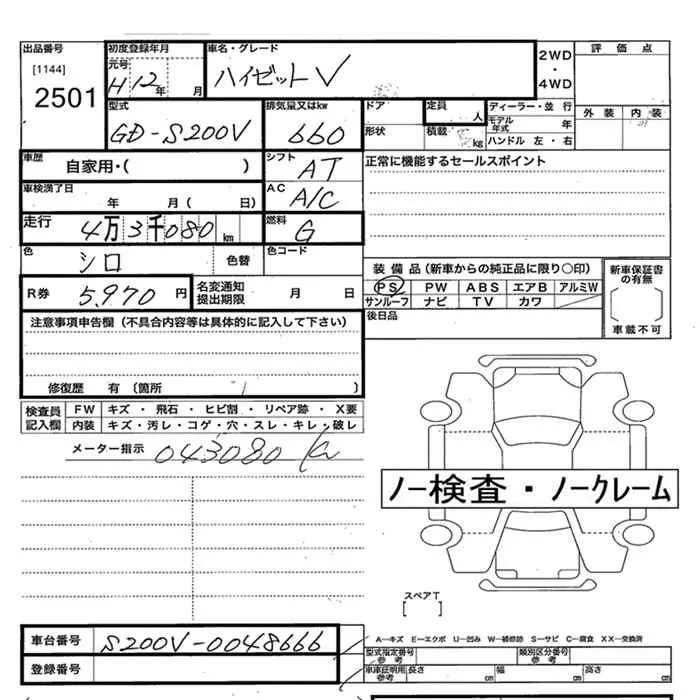 出品番号 初度登録年月 車名・グレード 2WD・4WD 評価点
[1144] 元号 H12年 月 ハイゼットV
2501 外装 内装
型式 排気量又はkw ドア 定員 人 ディーラー・並行
GD-S200V 660 形状 積載 kg モデル年式 年
ハンドル 左・右
車歴 自家用・( ) シフト AT 正常に機能するセールスポイント
車検満了日 年 月( 日) AC A/C
走行 4万3千080km 燃料 G
色 シロ 色替 色コード
装備品(新車からの純正品に限り○印) 新車保証書の有無
R券 5,970円 名変通知提出期限 月 日 PS PW ABS エアB アルミW
サンルーフ ナビ TV カワ
注意事項申告欄(不具合内容等は具体的に記入して下さい) 後日品 車載不可
修復歴 有(箇所 )
検査員記入欄 FW キズ・飛石・ヒビ割・リペア跡・X要
内装 キズ・汚レ・コゲ・穴・スレ・キレ・破レ
メーター指示 043080 K
ノー検査・ノークレーム
スペアT
[ ]
車台番号 S200V-0048666 A―キズ E―エクボ U―凹み W―補修跡 S―サビ C―腐食 XX―交換済
登録番号 型式指定番号参考 類別区分番号参考
車車証明用参考 長さ cm 幅 cm 高さ cm